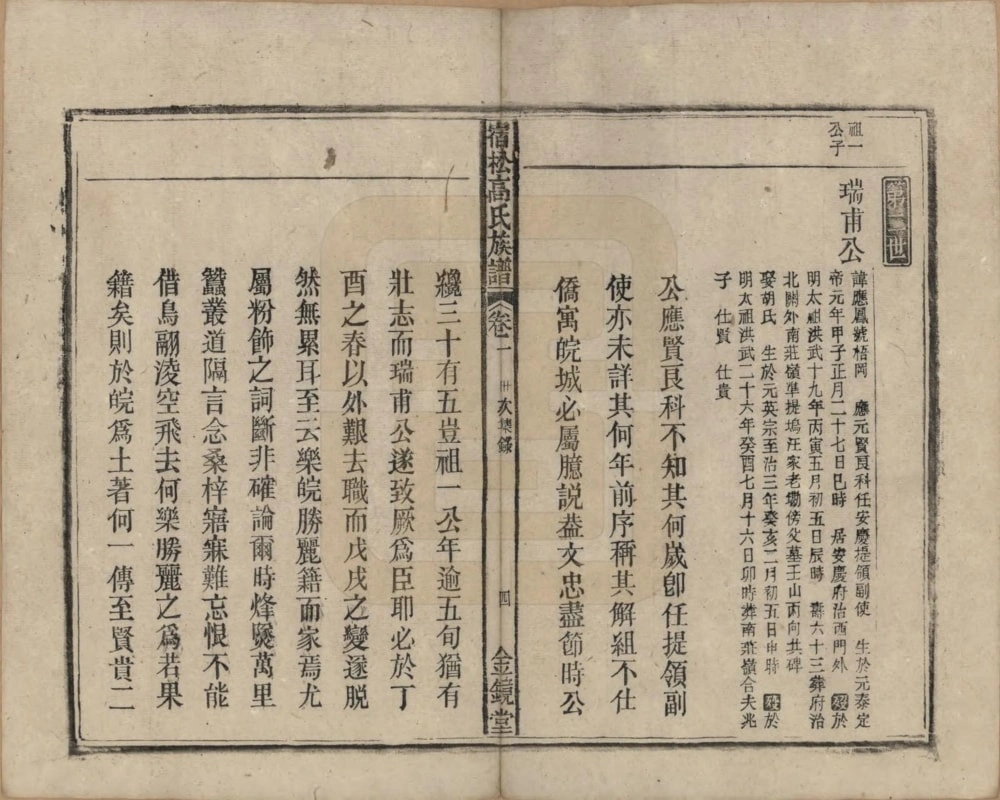 第二世
祖一
公子
瑞甫公
諱應鳳號梧岡　應元賢良科任安慶提領副使　生於元泰定
帝元年甲子正月二十七日巳時　居安慶府治西門外　歿於
明太祖洪武十九年丙寅五月初五日辰時　壽六十三葬府治
北關外南莊嶺準提塢汪家老墈傍父墓壬山丙向共碑
娶胡氏　生於元英宗至治三年癸亥二月初五日申時　歿於
明太祖洪武二十六年癸酉七月十六日卯時葬南莊嶺合夫兆
子　仕賢　仕貴
公應賢良科不知其何歲卽任提領副
使亦未詳其何年前序稱其解組不仕
僑寓皖城必屬臆説葢文忠盡節時公
宿松高氏族譜
卷一
世次集錄
四
金鏡堂
纔三十有五豈祖一公年逾五旬猶有
壯志而瑞甫公遂致厥爲臣耶必於丁
酉之春以外艱去職而戊戌之變遂脱
然無累耳至云樂皖勝麗籍而家焉尤
屬粉飾之詞斷非確論爾時烽燹萬里
蠶叢道隔言念桑梓寤寐難忘恨不能
借鳥翮淩空飛去何樂勝麗之爲若果
籍矣則於皖爲土著何一傳至賢貴二